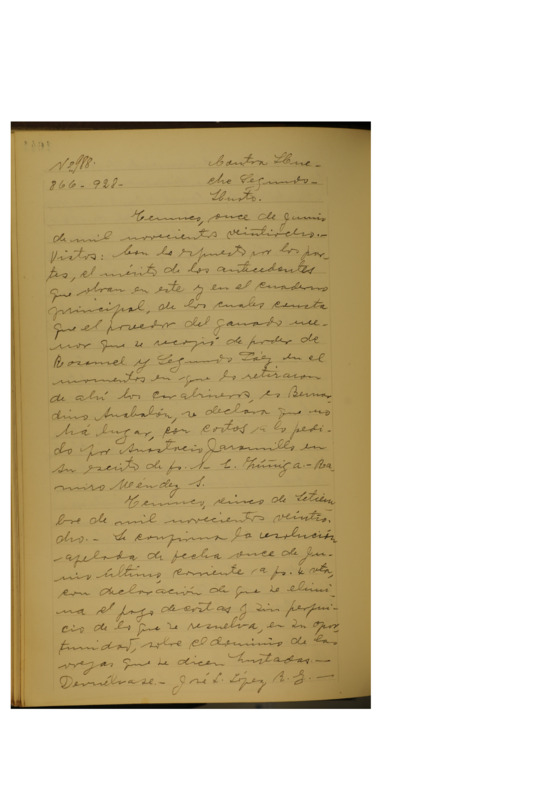 Nº 2918.
866-928-
Contra Hue-
che Segundo-
Hurto.
Temuco, once de Junio
de mil novecientos veintiocho.-
Vistos: Con lo expuesto por las par-
tes, el mérito de los antecedentes
que obran en este y en el cuaderno
principal, de los cuales consta
que el poseedor del ganado me-
nor que se recogió de poder de
Rosamel y Segundo Páez en el
momento en que lo retiraron
de ahí los carabineros, es Bernar
dino Anabalón, se declara que no
há lugar, con costas a lo pedi-
do por Anastacio Jaramillo en
su escrito de fs. 1. L. Zúñiga-Ra
miro Méndez S.
Temuco, cinco de Setiem
bre de mil novecientos veintio-
cho.- Se confirma la resolución
apelada de fecha once de Ju-
nio último, corriente a fs. 4 vta,
con declaración de que se elimi-
na el pago de costas y sin perjui-
cio de lo que se resuelva, en su opor
tunidad, sobre el dominio de las
ovejas que se dicen hurtadas.-
Devuélvase.- José L. López R. G.-